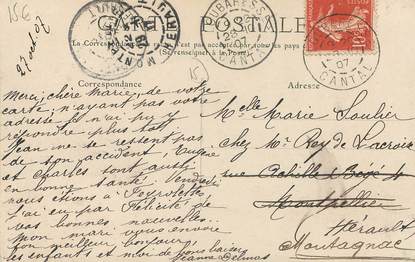 156
27 oct 07
CARTE POSTALE
La Correspondance
n'est pas accepté par tous les pays
(Se renseigner à la Poste)
Correspondance
Adresse
MONTAGNAC
HERAULT
CANTAL
CANTAL
07
15
Merci, chère Marie de votre
carte, n'ayant pas votre
adresse je n'ai pu y
répondre plus tôt.
Jean ne se ressent pas
de son accident, Eugène
et Charles sont aussi
en bonne santé. Vendredi
nous étions à
j'ai eu par Félicité de
vos bonnes nouvelles..
mon mari vous envoie
son meilleur bonjour,
les enfants et moi de bons baisers
Jeanne Delmas
Melle Marie Loulier
chez Mr Rey de Lacroix
rue
Montpellier
Hérault
Montagnac